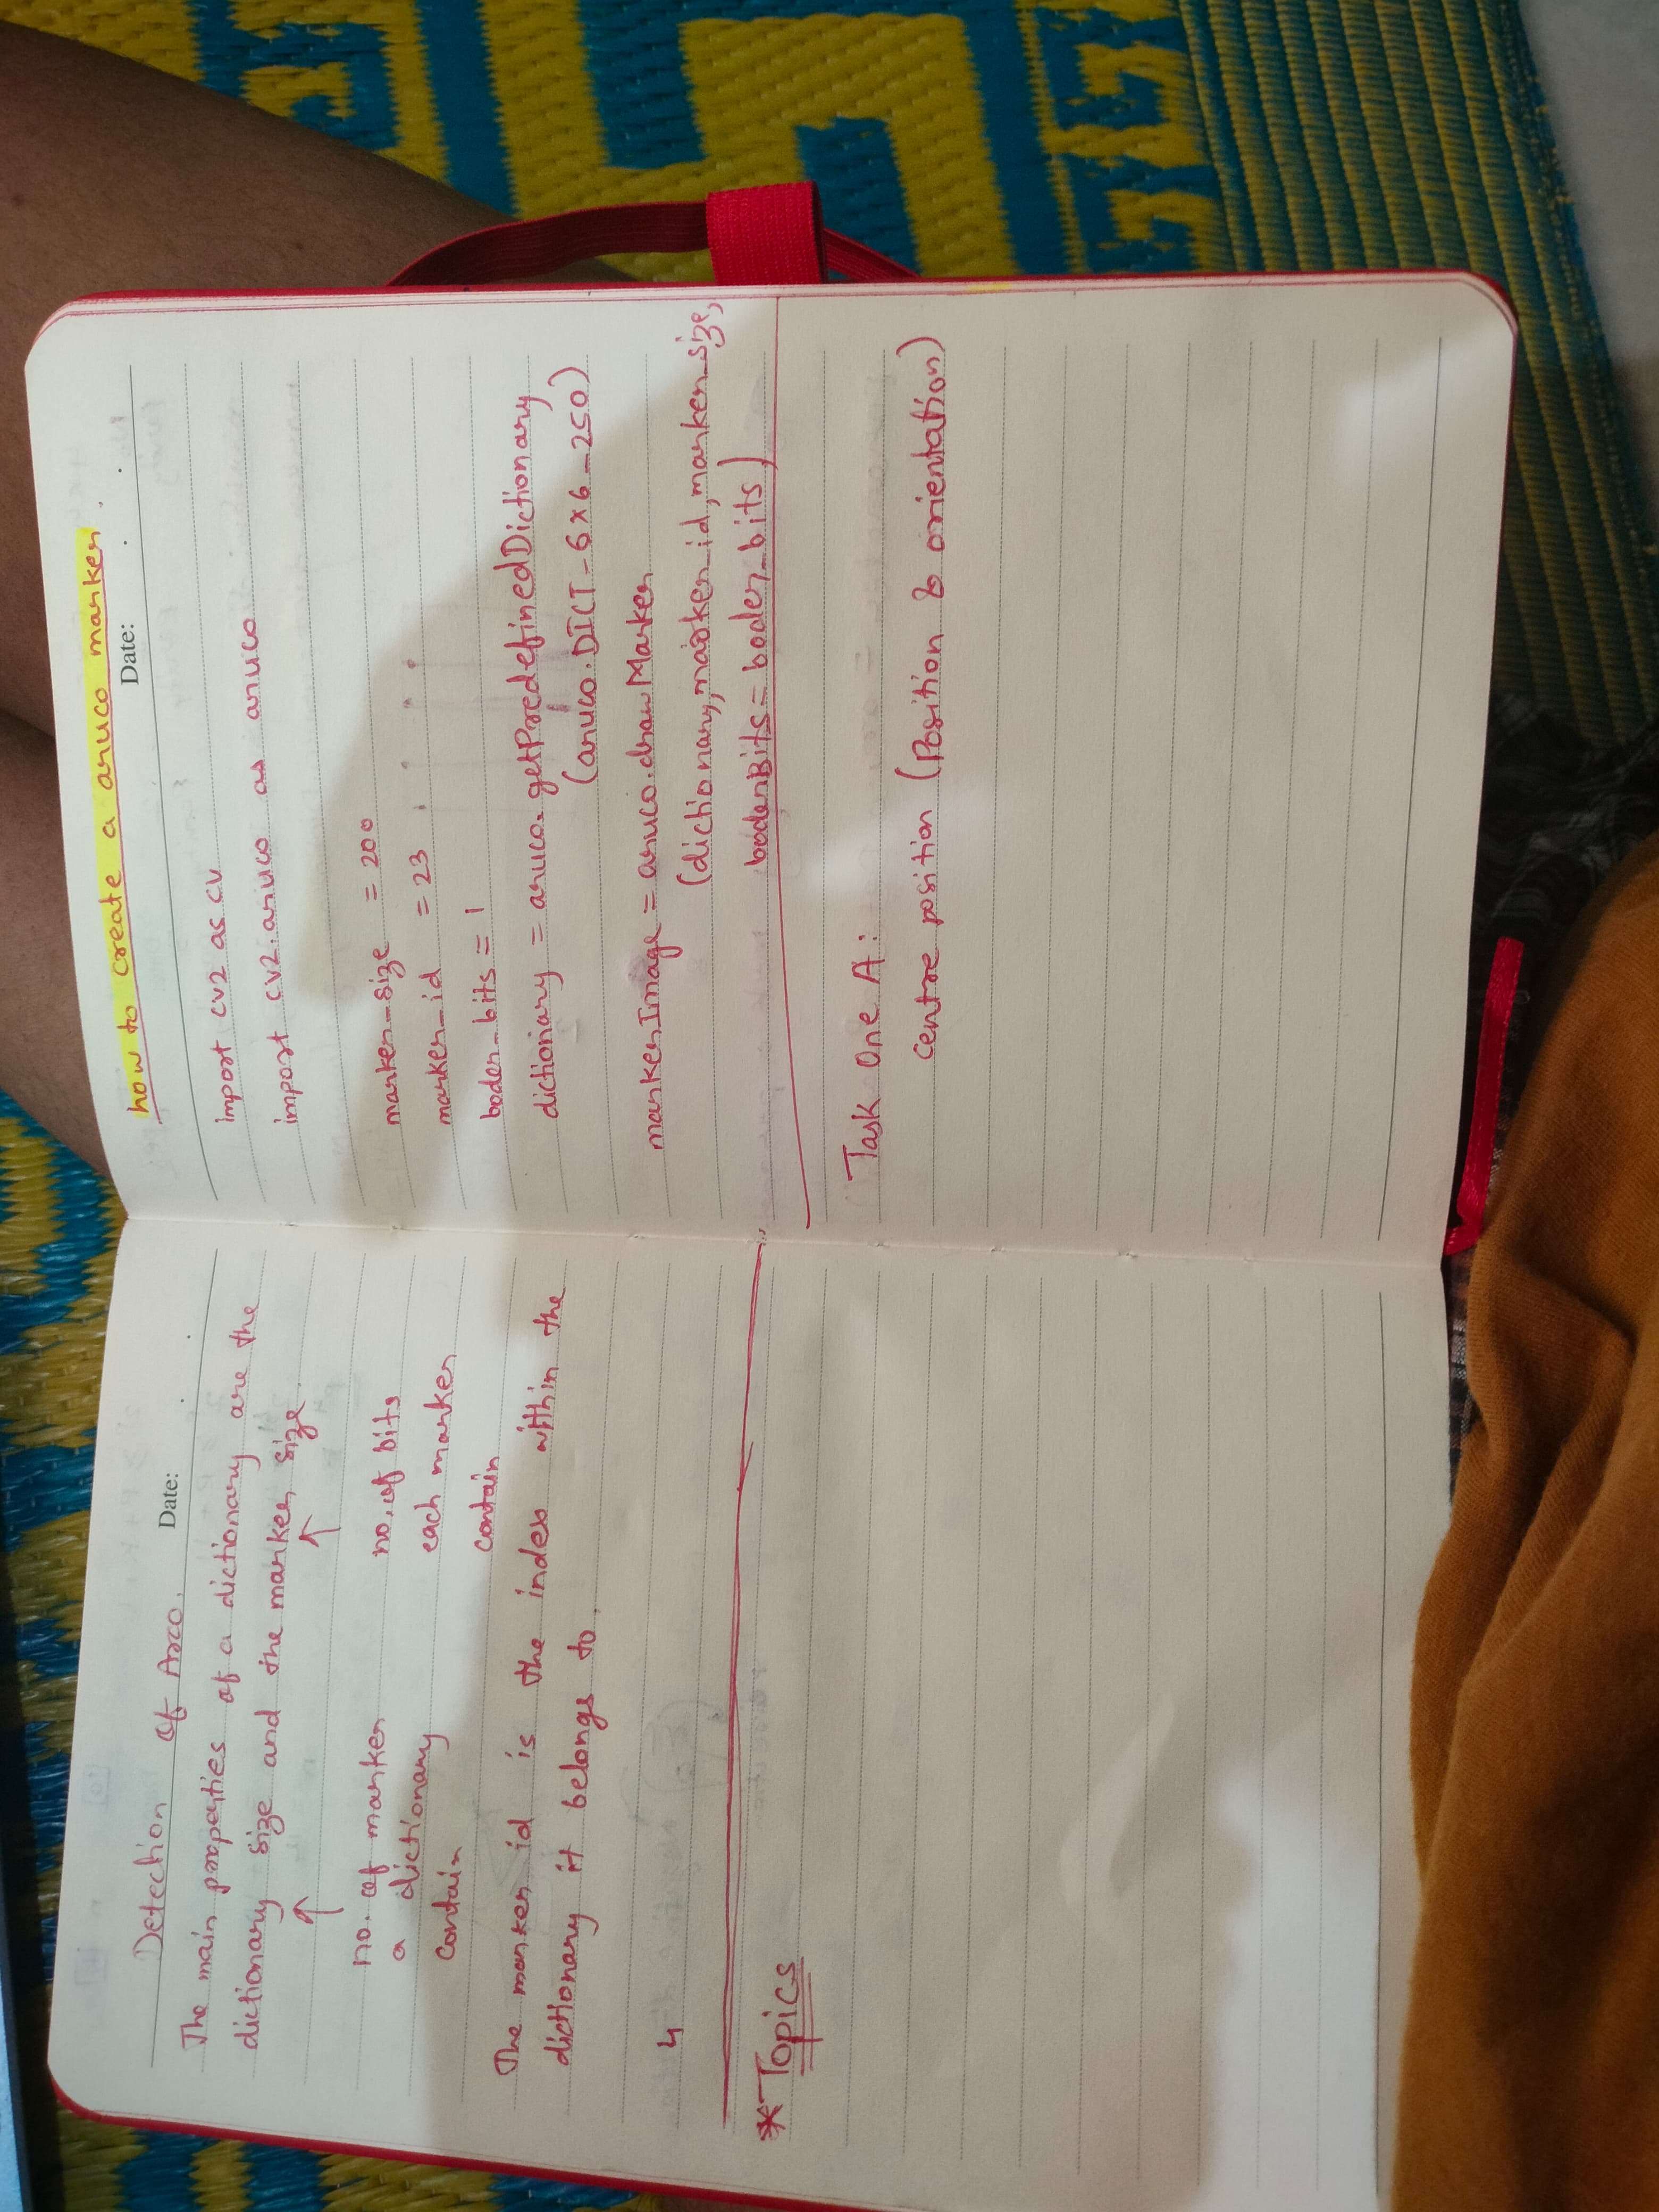 Date:
Detection of Arco.
The main properties of a dictionary are the
dictionary size and the marker size.
no. of marker no. of bits
a dictionary each marker
contain contain
The marker id is the index within the
dictionary it belongs to.
4
*Topics
how to create a aruco marker.
Date:
import cv2 as cv
import cv2.aruco as aruco
marker_size = 200
marker_id = 23
boder_bits = 1
dictionary = aruco.getPredefinedDictionary
(aruco.DICT_6x6_250)
markerImage = aruco.drawMarker
(dictionary, marker_id, marker_size,
boderBits = boder_bits)
Task One A:
centre position (Position & orientation)